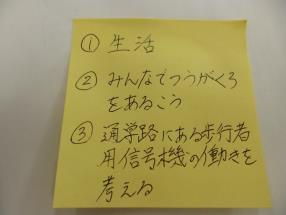 ① 生活
② みんなでつうがくろ
をあるこう
③ 通学路にある歩行者
用信号機の働きを
考える